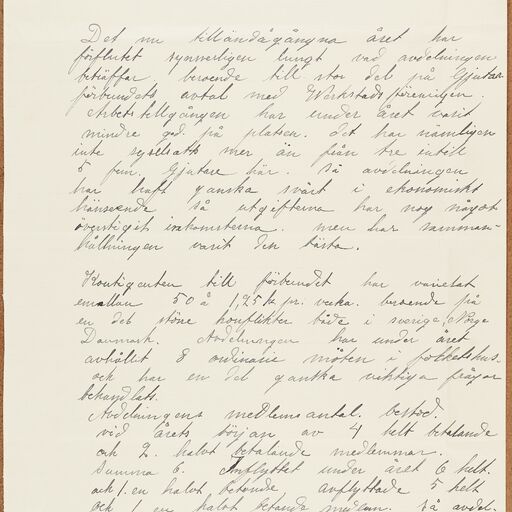 Det nu tilländagångna året har
förflutet synnerligen lungt vad avdelningen
beträffar beroende till stor del på Gjutare
förbundets avtal med Verkstadsföreningen.
Arbetstillgången har under året varit
mindre god på platsen. det har nämligen
inte sysselsatts mer än från tre intill
5 fem. Gjutare här. så avdelningen
har haft ganska svårt i ekonomiskt
hänseende så utgifterna har nog något
överstigit inkomsterna. men har samman-
hållningen varit den bästa.
Kontigenten till förbundet har varierat
emellan 50 å 1,75 kr pr. vecka. beroende på
en del större konflikter både i sverige, Norge
Danmark. Avdelningen har under året
avhållit 8 ordinarie möten i folketshus.
och har en del ganska viktiga frågor
behandlats.
Avdelningens medlemsantal. bestod.
vid årets början av 4 helt betalande
och 2. halvt betalande medlemmar.
Summa 6. Inflyttet under året 6 helt.
och 1. en halvt betande avflyttade 5 helt
och 1 en halvt betande medlem. så avdel-